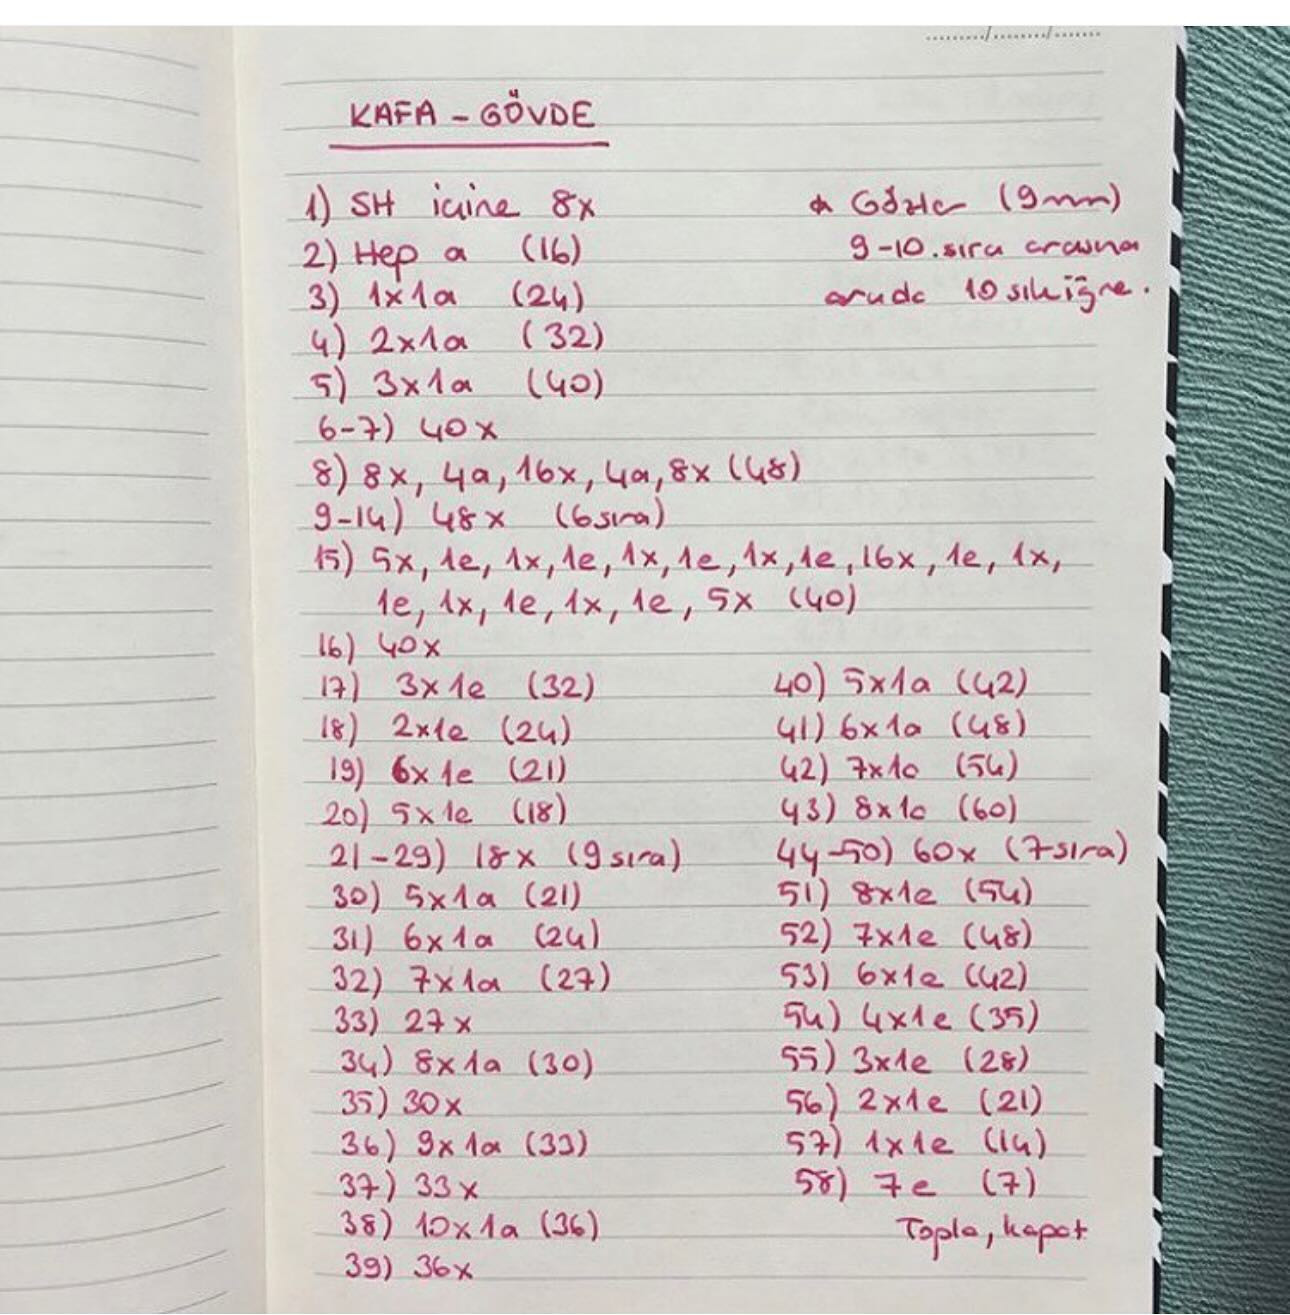 KAFA - GÖVDE
1) SH içine 8x
2) Hep a (16)
3) 1x1a (24)
4) 2x1a (32)
5) 3x1a (40)
6-7) 40x
8) 8x, 4a, 16x, 4a, 8x (48)
9-14) 48x (6 sıra)
15) 5x, 1e, 1x, 1e, 1x, 1e, 1x, 1e, 16x, 1e, 1x,
1e, 1x, 1e, 1x, 1e, 5x (40)
16) 40x
17) 3x1e (32)
18) 2x1e (24)
19) 6x1e (21)
20) 5x1e (18)
21-29) 18x (9 sıra)
30) 5x1a (21)
31) 6x1a (24)
32) 7x1a (27)
33) 27x
34) 8x1a (30)
35) 30x
36) 9x1a (33)
37) 33x
38) 10x1a (36)
39) 36x
* Gözler (9mm)
9-10. sıra arasına
arada 10 sık iğne.
40) 5x1a (42)
41) 6x1a (48)
42) 7x1a (54)
43) 8x1a (60)
44-50) 60x (7 sıra)
51) 8x1e (54)
52) 7x1e (48)
53) 6x1e (42)
54) 4x1e (35)
55) 3x1e (28)
56) 2x1e (21)
57) 1x1e (14)
58) 7e (7)
Topla, kapat